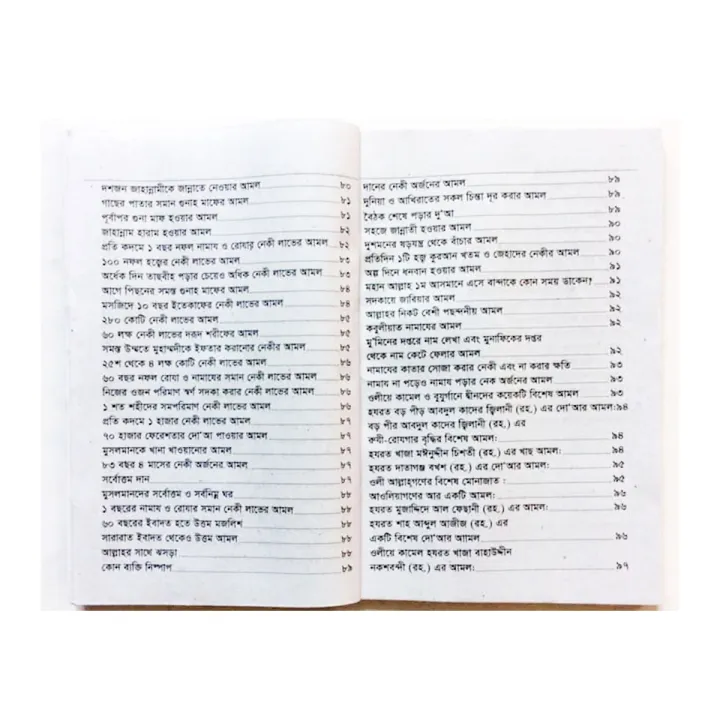 দশজন জাহান্নামীকে জান্নাতে নেওয়ার আমল ৮০
গাছের পাতার সমান গুনাহ মাফের আমল ৮১
পূর্বাপর গুনা মাফ হওয়ার আমল ৮১
জাহান্নাম হারাম হওয়ার আমল ৮২
প্রতি কদমে ১ বছর নফল নামায ও রোযার নেকী লাভের আমল ৮২
১০০ নফল হজ্বের নেকী লাভের আমল ৮৩
অর্ধেক দিন তাছবীহ পড়ার চেয়েও অধিক নেকী লাভের আমল ৮৩
আগে পিছনের সমস্ত গুনাহ মাফের আমল ৮৪
মসজিদে ১০ বছর ইতেকাফের নেকী লাভের আমল ৮৪
২৮০ কোটি নেকী লাভের আমল ৮৫
৬০ লক্ষ নেকী লাভের দরূদ শরীফের আমল ৮৫
সমস্ত উম্মতে মুহাম্মদীকে ইফতার করানোর নেকীর আমল ৮৫
২৫শ থেকে ৪ লক্ষ কোটি নেকী লাভের আমল ৮৬
৬০ বছর নফল রোযা ও নামাযের সমান নেকী লাভের আমল ৮৬
নিজের ওজন পরিমাণ স্বর্ণ সদকা করার নেকী লাভের আমল ৮৬
১ শত শহীদের সমপরিমাণ নেকী লাভের আমল ৮৬
প্রতি কদমে ১ হাজার নেকী লাভের আমল ৮৭
৭০ হাজার ফেরেশতার দো'আ পাওয়ার আমল ৮৭
মুসলমানকে খানা খাওয়ানোর আমল ৮৭
৮৩ বছর ৪ মাসের নেকী অর্জনের আমল ৮৭
সর্বোত্তম দান ৮৭
মুসলমানদের সর্বোত্তম ও সর্বনিম্ন ঘর ৮৮
১ বছরের নামায ও রোযার সমান নেকী লাভের আমল ৮৮
৬০ বছরের ইবাদত হতে উত্তম মজলিশ ৮৮
সারারাত ইবাদত থেকেও উত্তম আমল ৮৮
আল্লাহর সাথে ঝগড়া ৮৮
কোন ব্যক্তি নিষ্পাপ ৮৯
দানের নেকী অর্জনের আমল ৮৯
দুনিয়া ও আখিরাতের সকল চিন্তা দূর করার আমল ৮৯
বৈঠক শেষে পড়ার দু'আ ৮৯
সহজে জান্নাতী হওয়ার আমল ৯০
দুশমনের ষড়যন্ত্র থেকে বাঁচার আমল ৯০
প্রতিদিন ১টি হজ্ব কুরআন খতম ও জেহাদের নেকীর আমল ৯০
অল্প দিনে ধনবান হওয়ার আমল ৯১
মহান আল্লাহ ১ম আসমানে এসে বান্দাকে কোন সময় ডাকেন? ৯১
সদকায়ে জারিয়ার আমল ৯২
আল্লাহর নিকট বেশী পছন্দনীয় আমল ৯২
কবুলীয়াত নামাযের আমল ৯২
মু'মিনের দপ্তরে নাম লেখা এবং মুনাফিকের দপ্তর
থেকে নাম কেটে ফেলার আমল ৯২
নামাযের কাতার সোজা করার নেকী এবং না করার ক্ষতি ৯৩
নামায না পড়েও নামায পড়ার নেক অর্জনের আমল ৯৩
ওলীয়ে কামেল ও বুযুর্গানে দ্বীনদের কয়েকটি বিশেষ আমল ৯৩
হযরত বড় পীড় আবদুল কাদের জ্বিলানী (রহ.) এর দো'আর আমল: ৯৪
বড় পীর আবদুল কাদের জ্বিলানী (রহ.) এর
রুযী-রোযগার বৃদ্ধির বিশেষ আমল: ৯৪
হযরত খাজা মঈনুদ্দীন চিশতী (রহ.) এর খাছ আমল: ৯৪
হযরত দাতাগঞ্জ বখশ (রহ.) এর দো'আর আমল: ৯৫
ওলী আল্লাহ্‌গণের বিশেষ মোনাজাত : ৯৫
আওলিয়াগণের আর একটি আমল: ৯৬
হযরত মুজাদ্দিদে আল ফেছানী (রহ.) এর আমল: ৯৬
হযরত শাহ আব্দুল আজীজ (রহ.) এর
একটি বিশেষ দো'আর আমল: ৯৬
ওলীয়ে কামেল হযরত খাজা বাহাউদ্দীন
নকশবন্দী (রহ.) এর আমল: ৯৭